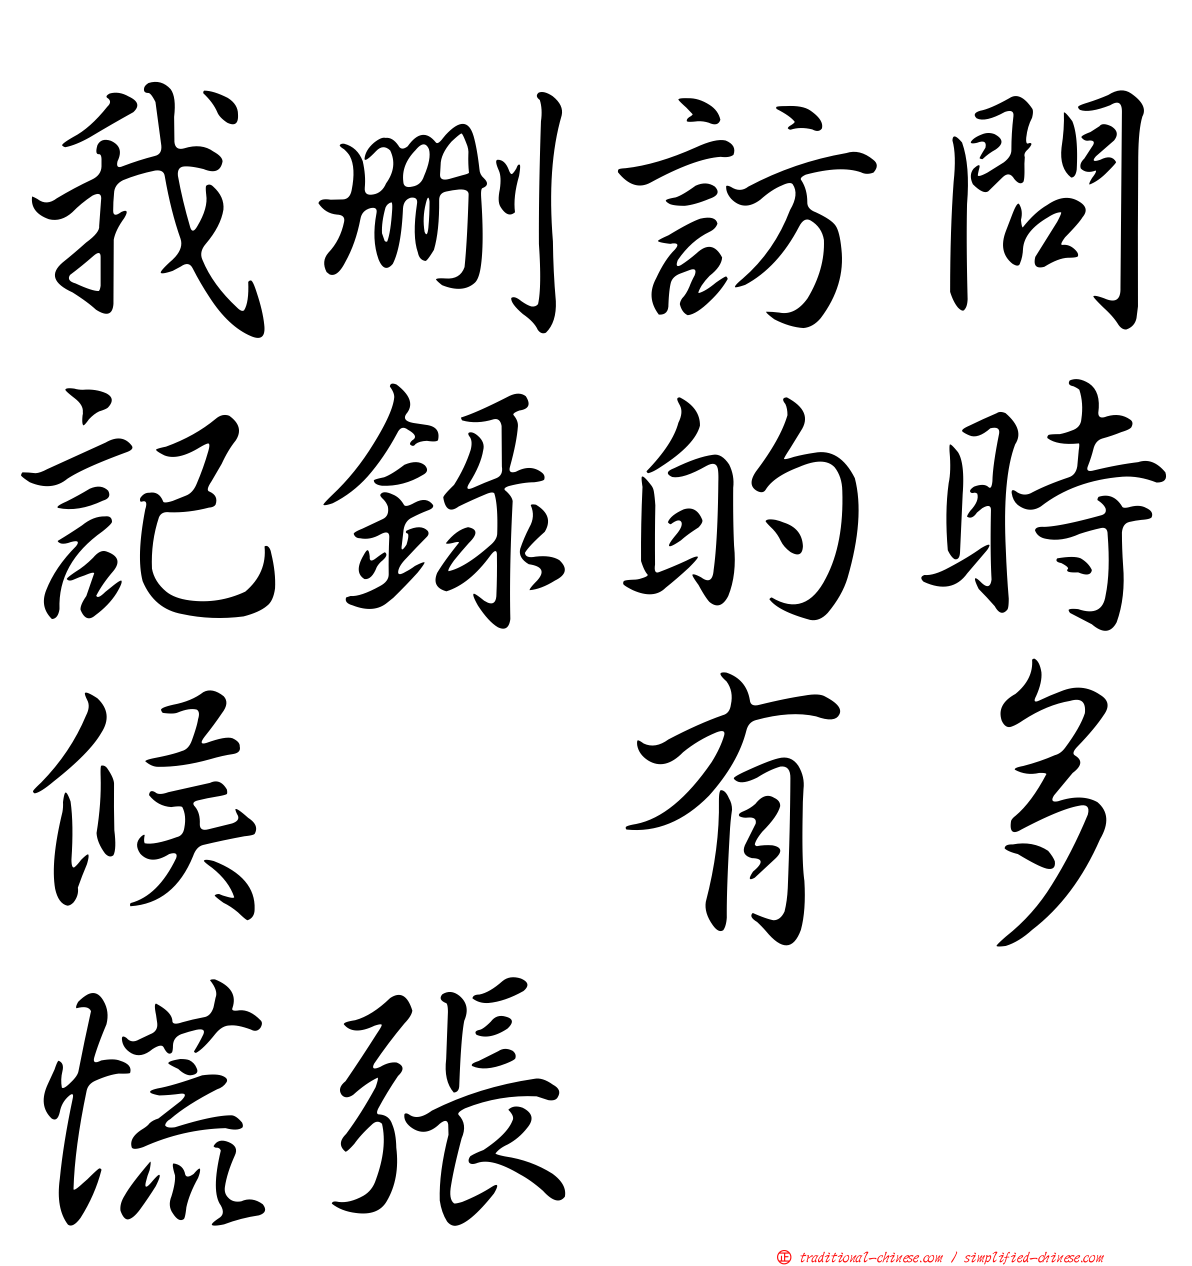 我刪訪問
記錄的時
候 有多
慌張
正 traditional-chinese.com / simplified-chinese.com